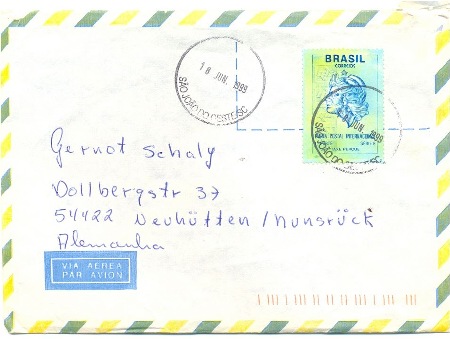 BRASIL
CORREIOS
18 JUN. 1999
SÃO JOÃO DO OESTE/SC
POSTAL INTERNACIONAL
JUN. 1999
SÃO JOÃO DO OESTE/SC
Gernot Schaly
Dollbergstr 37
54422 Neuhütten/Hunsrück
Alemanha
VIA AÉREA
PAR AVION